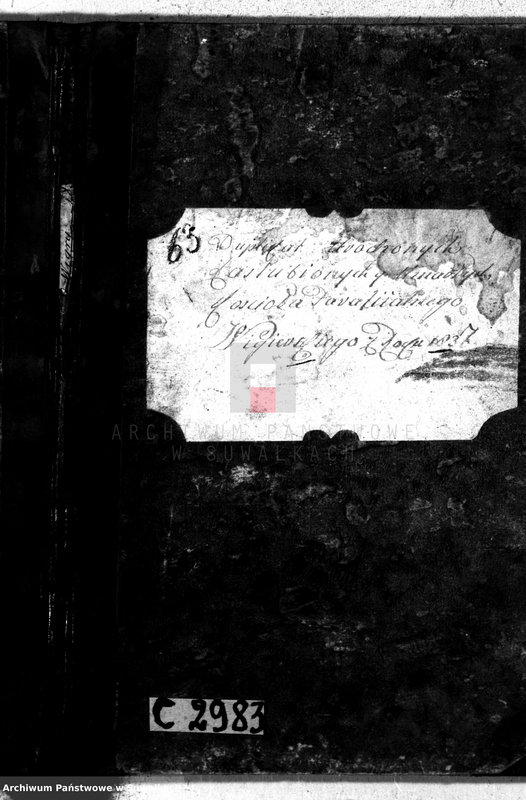 63 Duplikat Urodzonych
Zaslubionych y Zmarłych
Kościoła Parafialnego
z Roku 1837
ARCHIWUM PAŃSTWOWE
W SUWAŁKACH
C 2983
Archiwum Państwowe w S